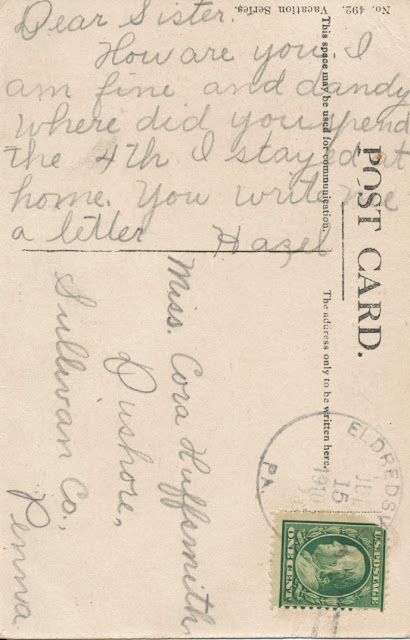 Dear Sister.
How are you I
am fine and dandy
where did you spend
the 4th I stayed at
home. You write me
a letter Hazel
No. 492. Vacation Series.
This space may be used for communication.
POST CARD.
The address only to be written here.
Miss. Cora Huffsmith
Dushore,
Sullivan Co.,
Penna
JUL
15
1910
PA.
U.S. POSTAGE
ONE CENT